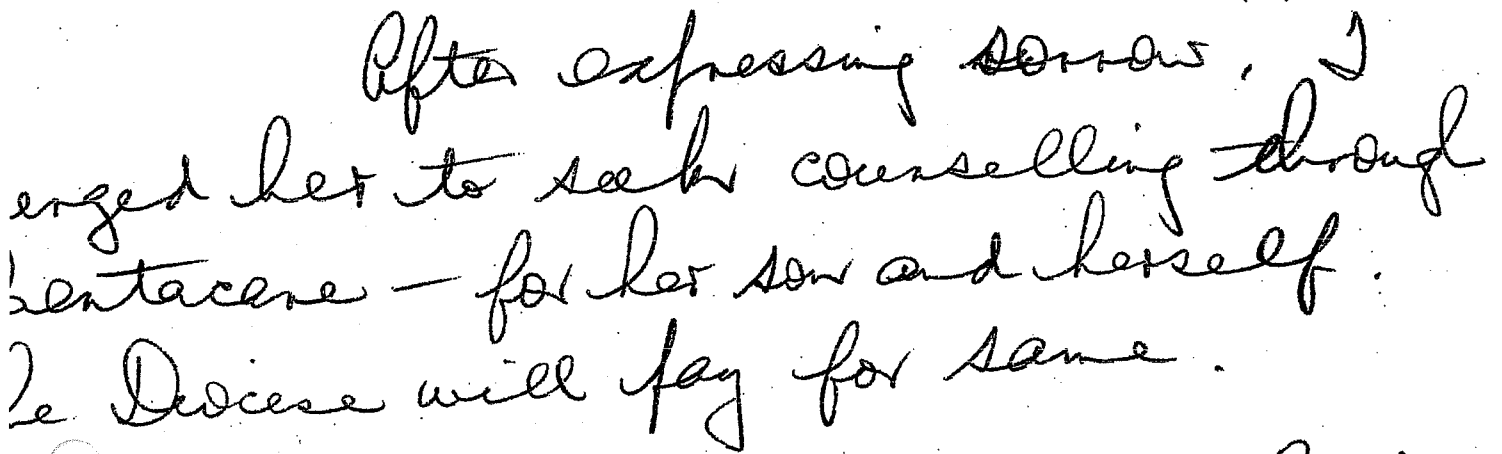 After expressing sorrow, I
urged her to seek counselling through
Centacare — for her son and herself.
The Diocese will pay for same.